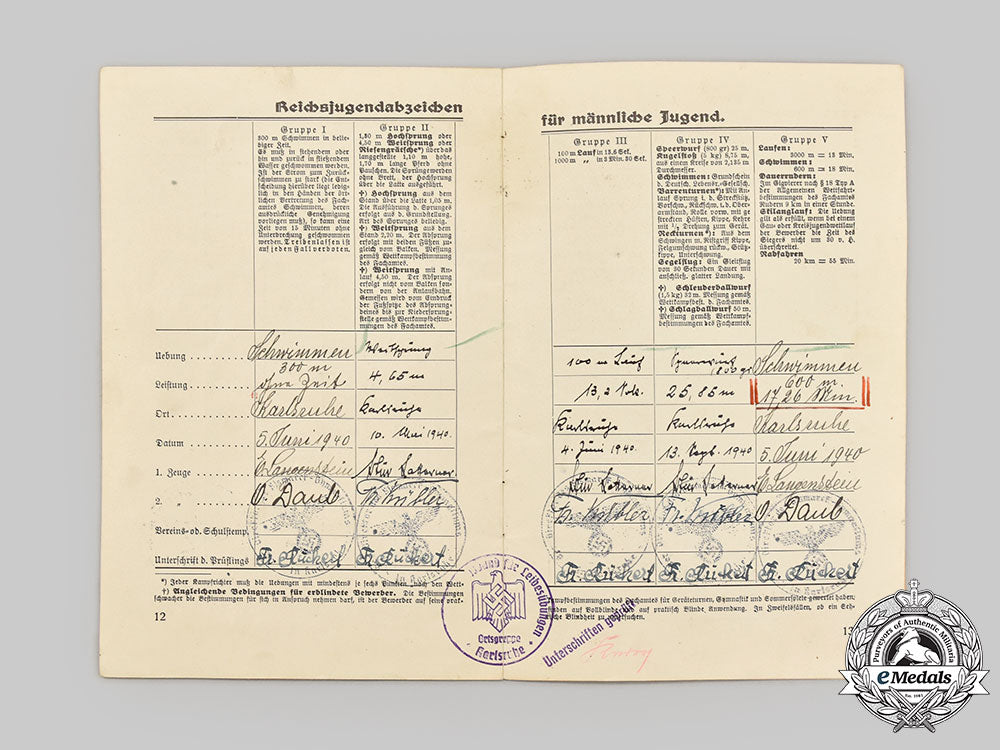 Reichsjugendabzeichen
für männliche Jugend.
Gruppe I
300 m Schwimmen in belie-
biger Zeit.
Es muß in stehendem oder
hin und zurück in fließendem
Wasser geschwommen werden.
Ist der Strom zum Zurück-
schwimmen zu stark (die Ent-
scheidung hierüber liegt ledig-
lich in den Händen der ört-
lichen Vertretung des Fach-
amtes Schwimmen, deren
ausdrückliche Genehmigung
vorliegen muß), so kann eine
Zeit von 15 Minuten ohne
Unterbrechung geschwommen
werden. Treibenlassen ist
auf jeden Fall verboten.
Gruppe II
1,30 m Hochsprung oder
4,50 m Weitsprung oder
Riesengrätsche*) über das
langgestellte 1,10 m hohe,
1,70 m lange Pferd ohne
Pauschen. Die Sprünge werden
ohne Brett, der Hochsprung
über die Latte ausgeführt.
†) Hochsprung aus dem
Stand über die Latte 1,05 m.
Die Ausführung d. Sprunges
erfolgt a. d. Grundstellung.
Art des Sprunges beliebig.
†) Weitsprung aus dem
Stand 2,20 m. Der Absprung
erfolgt mit beiden Füßen zu-
gleich vom Balken. Messung
gemäß Wettkampfbestimmung
des Fachamtes.
†) Weitsprung mit An-
lauf 4,50 m. Der Absprung
erfolgt nicht vom Balken son-
dern von der Anlaufbahn.
Gemessen wird vom Eindruck
der Fußspitze des Absprung-
beines bis zur Niedersprung-
stelle gemäß Wettkampfbestim-
mungen des Fachamtes.
Gruppe III
100 m Lauf in 13,6 Sek.
1000 m „ in 3 Min. 50 Sek.
Gruppe IV
Speerwurf (600 gr) 25 m.
Kugelstoß (5 kg) 8,75 m,
aus einem Kreise von 2,135 m
Durchmesser.
Schwimmen: Grundschein
d. Deutsch. Lebensr.-Gesellsch.
Barrenturnen*): Mit An-
lauf Sprung i. d. Streckstütz,
Vorschw., Rückschw. i. d. Ober-
armstand, Rolle vorw. mit ge-
streckten Hüften, Kippe, Kehre
mit ¼ Drehung zum Gerät.
Reckturnen*): Aus dem
Schwingen m. Ristgriff Kippe,
Felgumschwung rückw., Stütz-
kippe, Unterschwung.
Segelflug: Ein Gleitflug
von 30 Sekunden Dauer mit
anschließ. glatter Landung.
†) Schleuderballwurf
(1,5 kg) 32 m. Messung gemäß
Wettkampfbest. d. Fachamtes.
†) Schlagballwurf 50 m.
Messung gemäß Wettkampf-
bestimmungen des Fachamtes.
Gruppe V
Laufen:
3000 m = 13 Min.
Schwimmen:
600 m = 18 Min.
Dauerrudern:
Im Gigvierer nach § 18 Typ A
der Allgemeinen Wettfahrt-
bestimmungen des Fachamtes
Rudern 9 km in einer Stunde.
Skilanglauf: Die Uebung
gilt als erfüllt, wenn bei einem
Gau- oder Kreisjugendwettlauf
der Bewerber die Zeit des
Siegers nicht um 30 v. H.
überschreitet.
Radfahren
20 km = 55 Min.
Uebung Schwimmen 300 m Weitsprung 100 m Lauf Speerwurf 600 gr Schwimmen 600 m.
Leistung ohne Zeit 4,65 m 13,2 Sek. 25,85 m 17,26 Min.
Ort Karlsruhe Karlsruhe Karlsruhe Karlsruhe Karlsruhe
Datum 5. Juni 1940 10. Mai 1940. 4. Juni 1940 13. Sept. 1940 5. Juni 1940
1. Zeuge E. Langenstein E. Langenstein
2. „ O. Daub Fr. Kübler Fr. Kübler Fr. Kübler O. Daub
Vereins- od. Schulstemp.
Unterschrift d. Prüflings Fr. Rückert Fr. Rückert Fr. Rückert Fr. Rückert Fr. Rückert
*) Jeder Kampfrichter muß die Uebungen mit mindestens je sechs Punkten, nach den Wett-
kampfbestimmungen des Fachamtes für Geräteturnen, Gymnastik und Sommerspiele gewertet haben.
†) Angleichende Bedingungen für erblindete Bewerber. Die Bestimmungen
finden auf Vollblinde und auf praktisch Blinde Anwendung. In Zweifelsfällen, ob ein Be-
werber die Bestimmungen für sich in Anspruch nehmen darf, ist der Bewerber auf seine prak-
tische Blindheit zu untersuchen.
12
13
für Leibesübungen
Ortsgruppe
Karlsruhe
Unterschriften geprüft
Purveyors of Authentic Militaria
eMedals